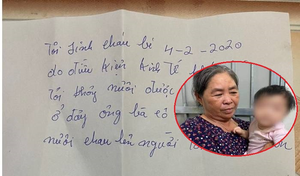 Tôi sinh cháu bé 4-2-2020
do điều kiện kinh tế
Tôi không nuôi được
ở đây ông bà
nuôi cháu lên người